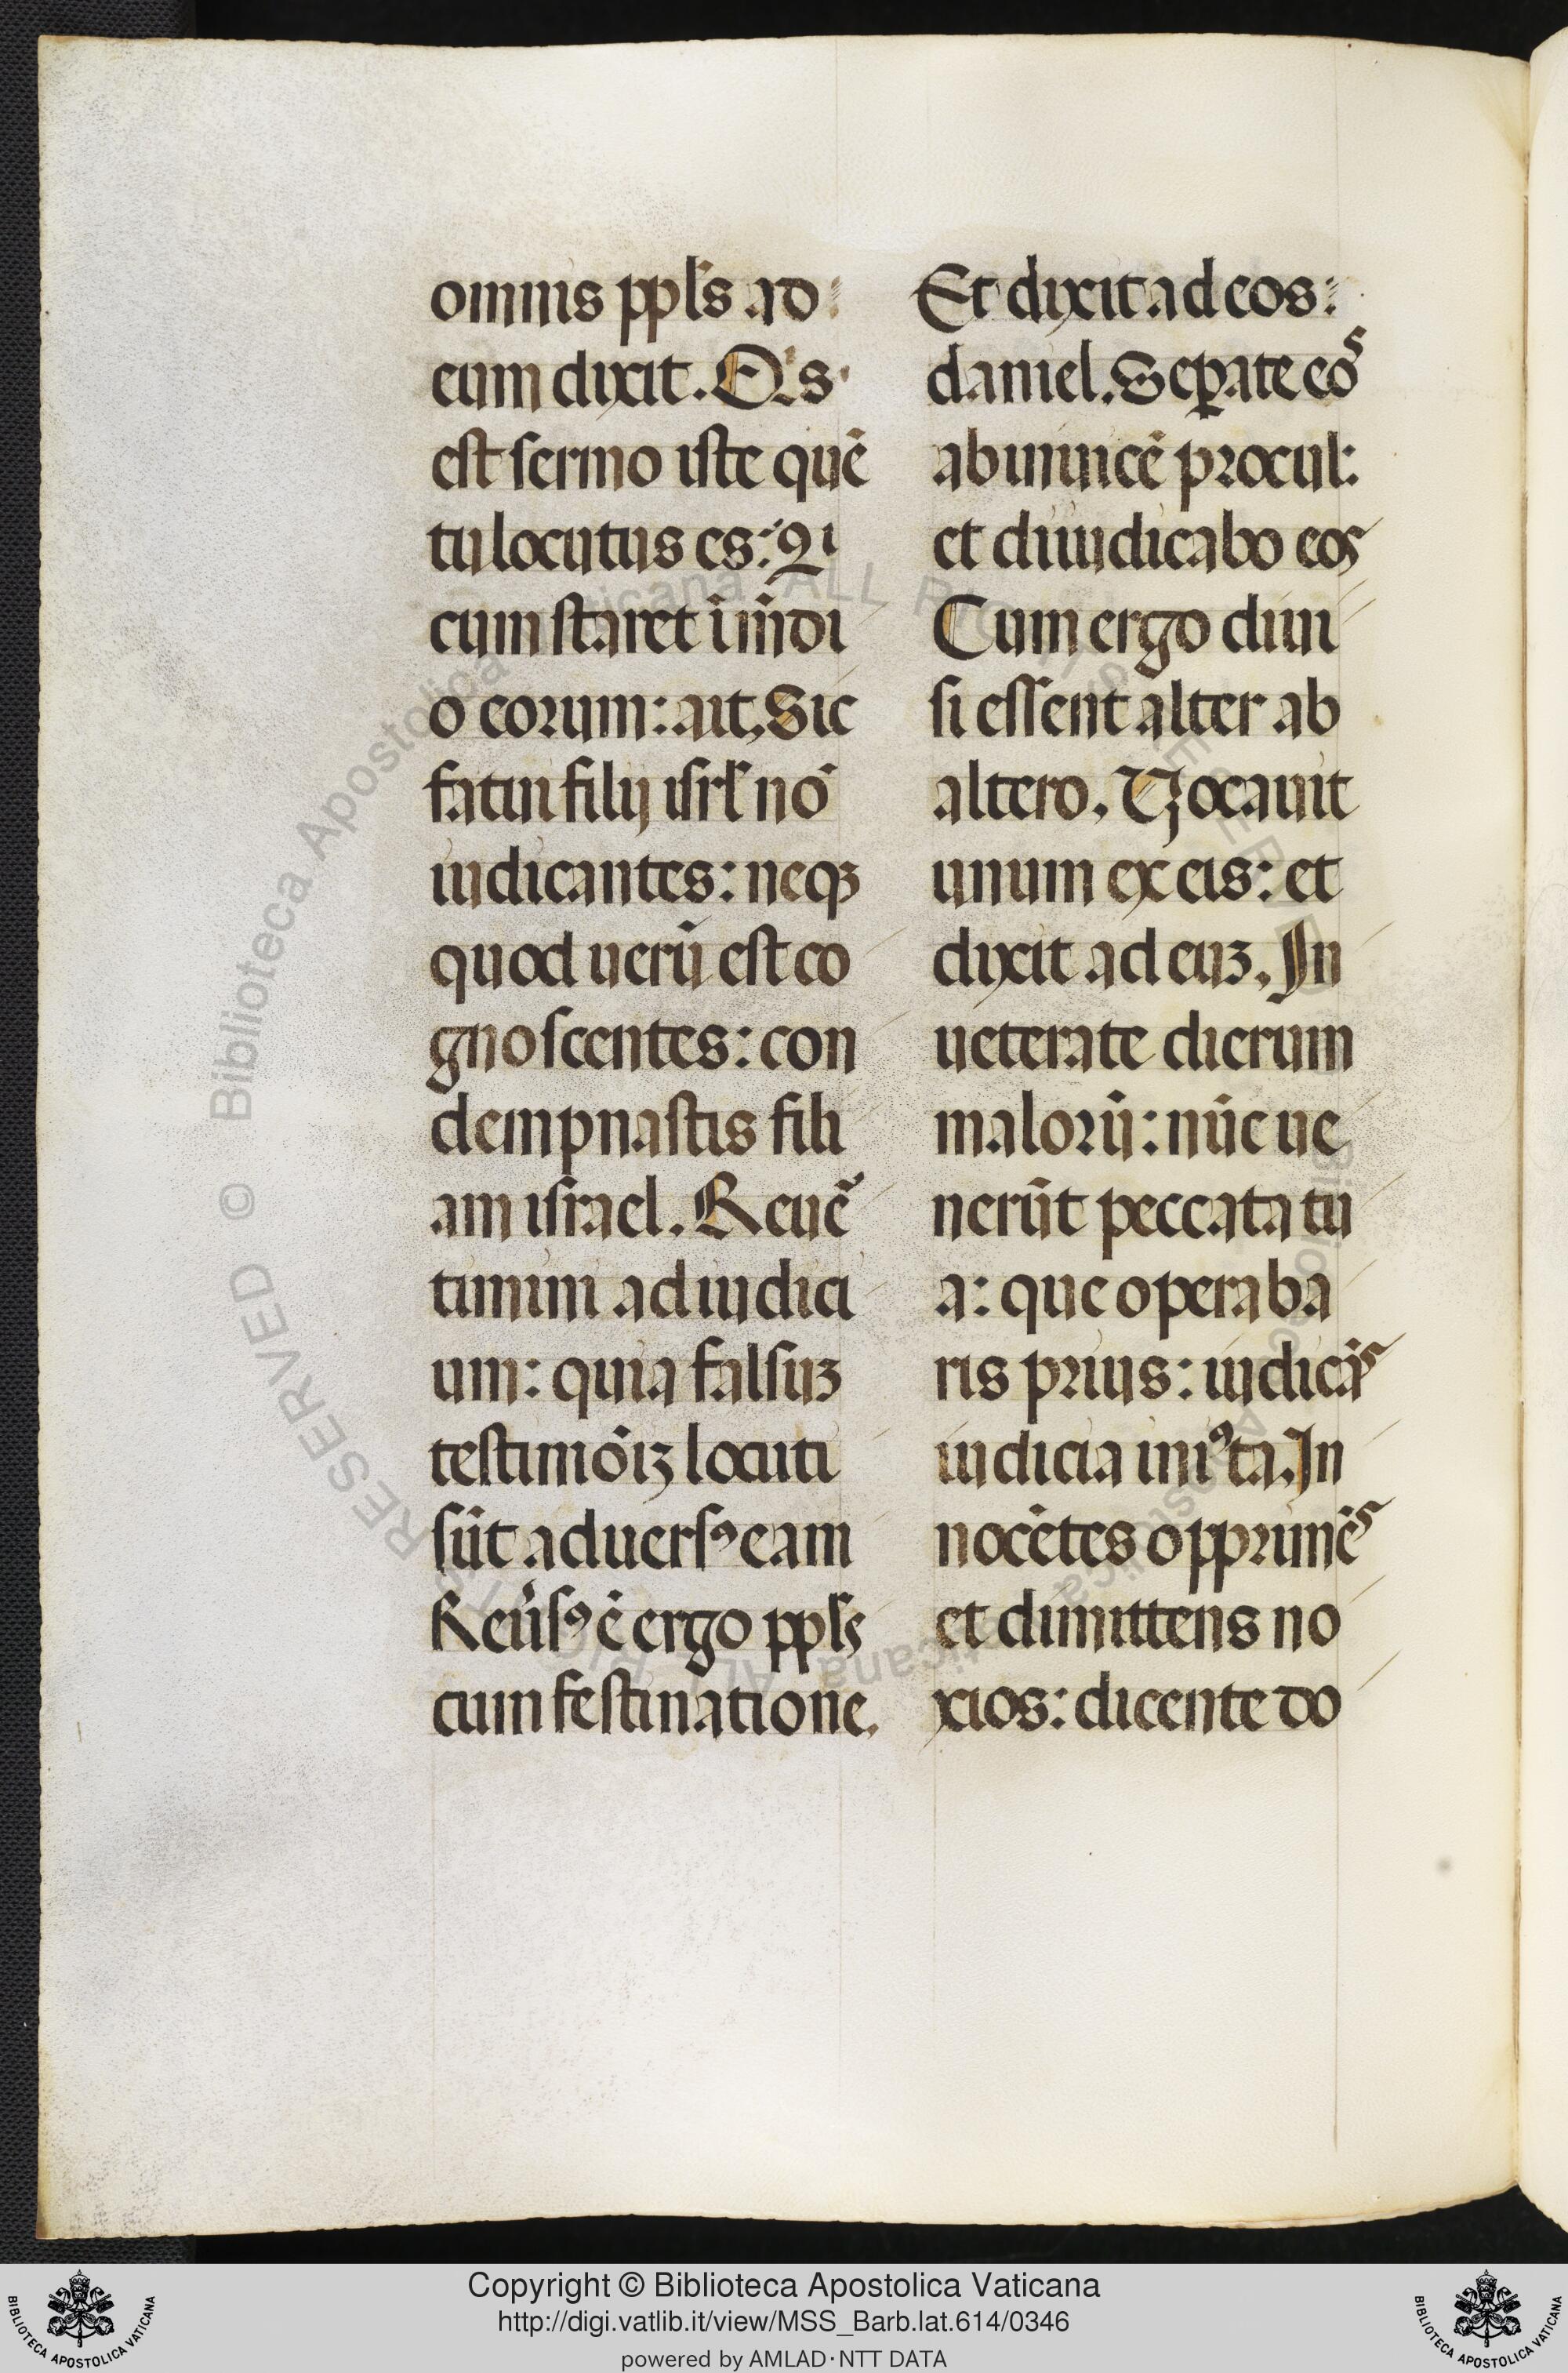 omnis ppl's ad
eum dixit. Q's
est sermo iste quē
tu locutus es: Qi
cum staret ī mēdi
o eorum: ait, Sic
fatui filij isrl' nō
iudicantes: neqꝫ
quod uerū est co
gnoscentes: con
dempnastis fili
am israel. Reuē
timini ad iudici
um: quia falsuꝫ
testimōiꝫ locuti
sūt aduersꝰ eam
Reūsꝰ ē ergo ppl's
cum festinatione.
Et dixit ad eos:
daniel. Seꝑate eos
abinuicē procul:
et diiudicabo eos
Cum ergo diui
si essent alter ab
altero. Vocauit
unum ex eis: et
dixit ad euꝫ. In
ueterate dierum
malorū: nūc ue
nerūt peccata tu
a: que opera ba
ris prius: iudicās
iudicia iniꝰta. In
nocētes opprimēs
et dimittens no
xios: dicente do
Copyright © Biblioteca Apostolica Vaticana
http://digi.vatlib.it/view/MSS_Barb.lat.614/0346
powered by AMLAD·NTT DATA
BIBLIOTECA APOSTOLICA VATICANA
BIBLIOTECA APOSTOLICA VATICANA